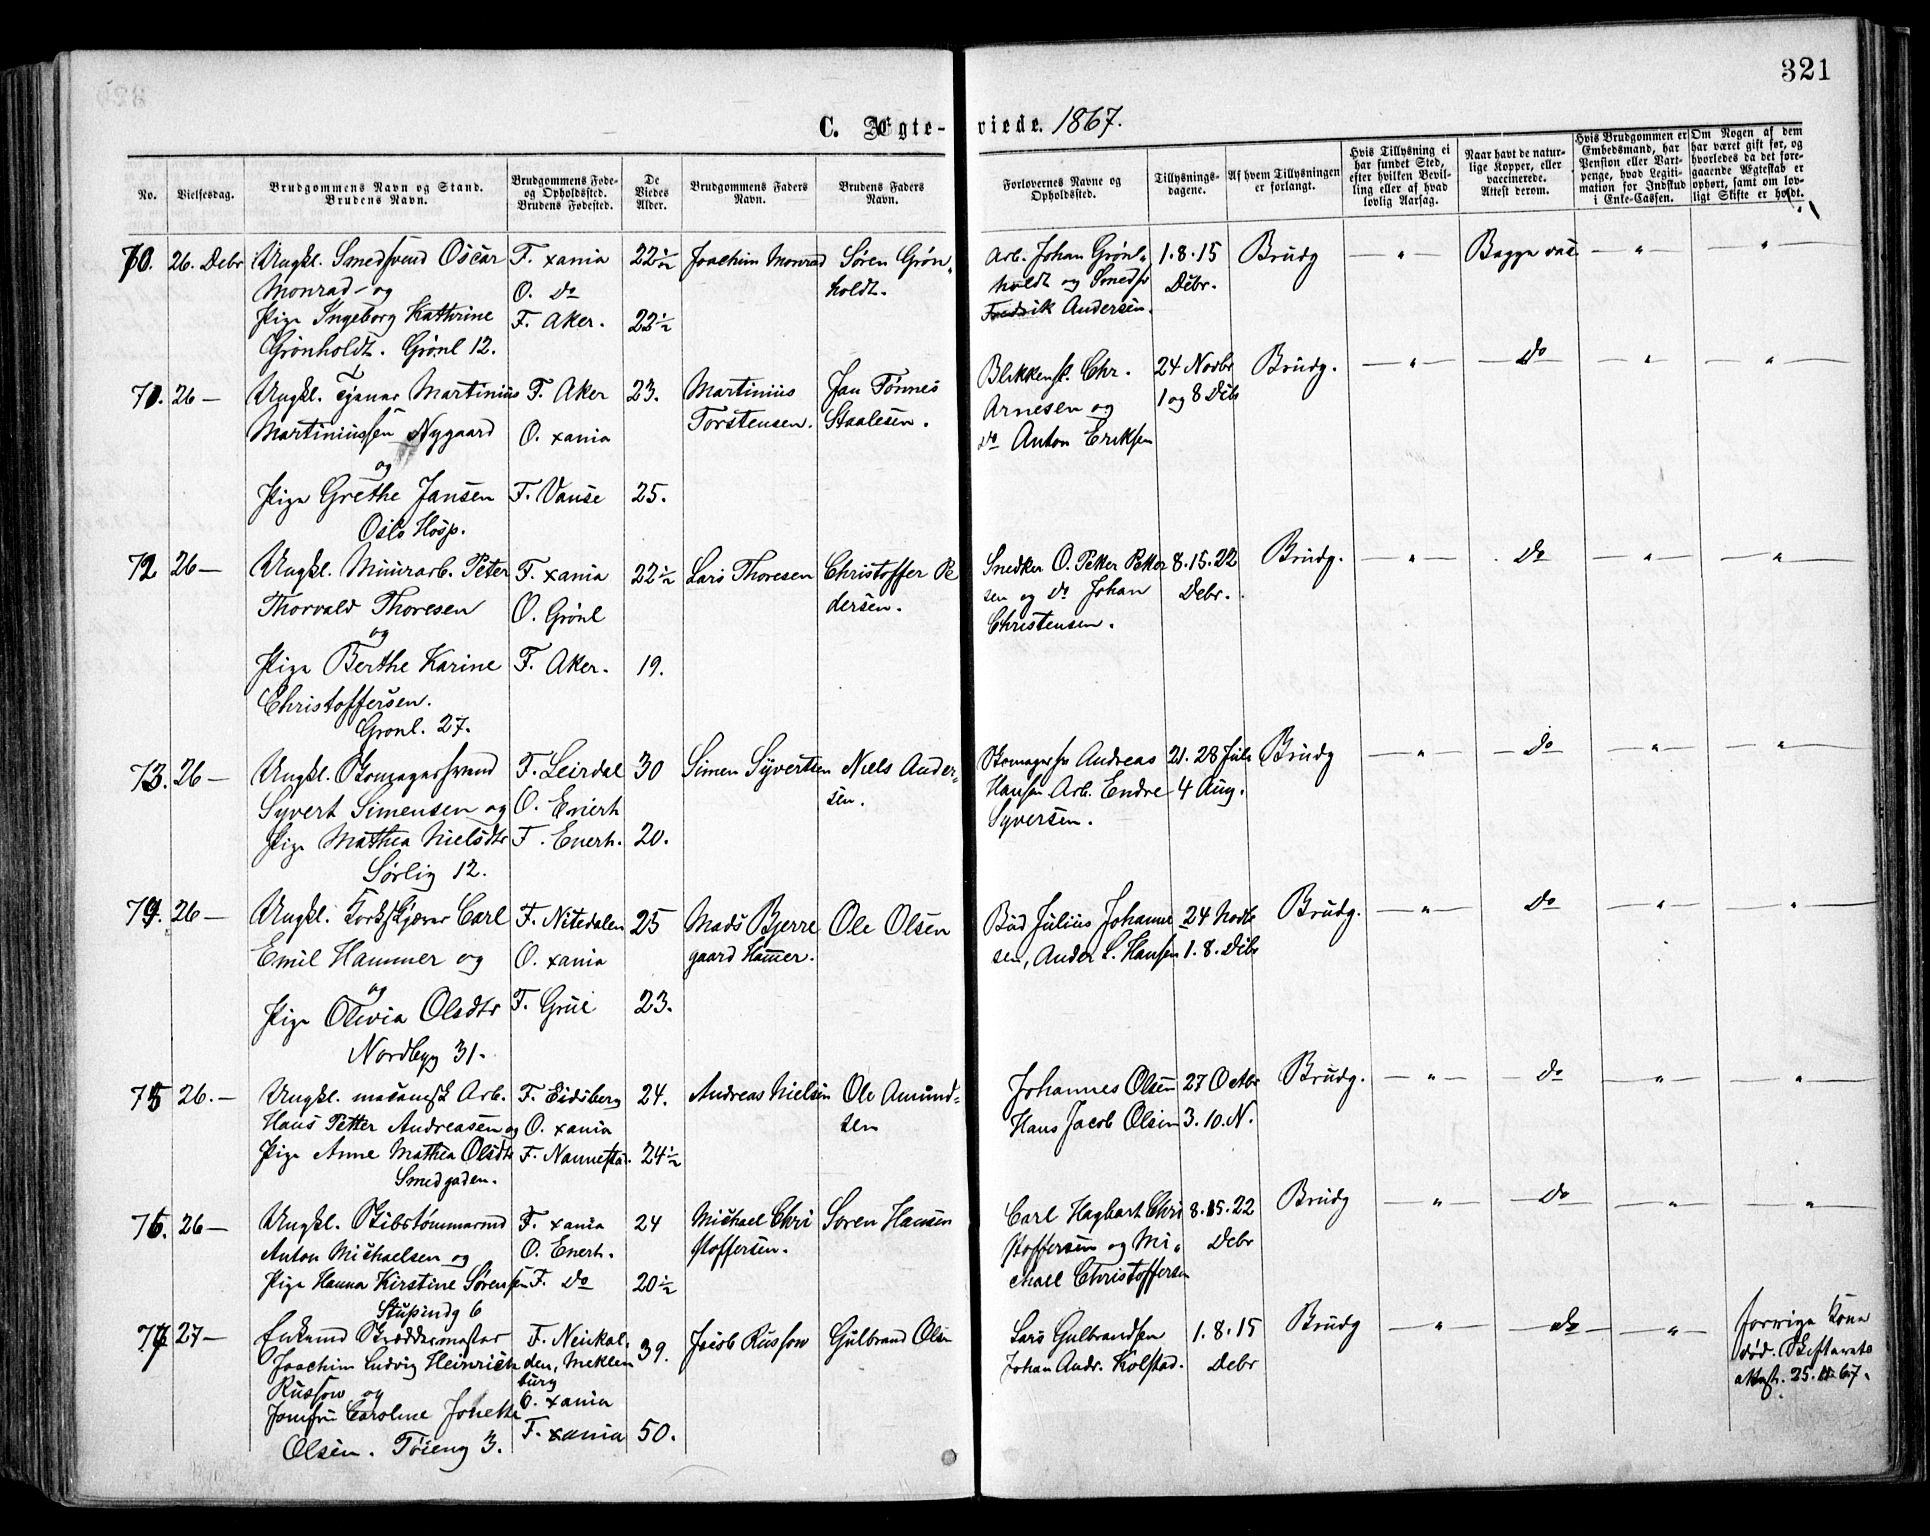 321
C. Ægte-viede. 1867.
No.
Vielsesdag.
Brudgommens Navn og Stand.
Brudens Navn.
Brudgommens Føde-
og Opholdssted.
Brudens Fødested.
De
Viedes
Alder.
Brudgommens Faders
Navn.
Brudens Faders
Navn.
Forlovernes Navne og
Opholdssted.
Tillysnings-
dagene.
Af hvem Tillysningen
er forlangt.
Hvis Tillysning ei
har fundet Sted,
efter hvilken Bevil-
ling eller af hvad
lovlig Aarsag.
Naar havt de natur-
lige Kopper, eller
vaccinerede.
Attest derom.
Hvis Brudgommen er
Embedsmand, har
Pension eller Vart-
penge, hvad Legiti-
mation for Indskud
i Enke-Cassen.
Om Nogen af dem
har været gift før, og
hvorledes da det fore-
gaaende Ægteskab er
ophørt, samt om lov-
ligt Skifte er holdt.
70. 26. Debr Ungkl. Smedsvend Oscar F. xania 22½ Joachim Monrad Søren Grøn- Arb. Johan Grøn- 1.8.15 Brudg " Begge vac " "
Monrad og O. do holdt. holdt og Smedsv Debr.
Pige Ingeborg Kathrine F. Aker. 22½ Fredrik Andersen.
Grønholdt. Grønl 12.
71. 26 — Ungkl. Tjener Martinius F. Aker 23. Martinius Jan Tønnes Blikkensl. Chr. 24 Novbr Brudg. " do " "
Martiniussen Nygaard O. xania Torstensen. Staalesen. Arnesen og 1 og 8 Debr
og do Anton Eriksen
Pige Grethe Jansen F. Vanse 25.
Oslo Hosp.
72 26 — Ungkl. Murarb. Peter F. xania 22½ Lars Thoresen Christoffer Pe Snedker O. Peter Peter 8.15.22 Brudg. " do " "
Thorvald Thoresen O. Grønl dersen. sen og do Johan Debr.
og Christensen.
Pige Berthe Karine F. Aker. 19.
Christoffersen.
Grønl. 27.
73. 26 — Ungkl. Skomagersvend F. Leirdal 30 Simen Syvertsen Niels Ander- Skomagersv Andreas 21. 28 Juli Brudg " do " "
Syvert Simensen og O. Enerh sen. Hansen Arb. Endre 4 Aug.
Pige Mathea Nielsdtr F. Enerh. 20. Syversen.
Sørlig 12.
74. 26 — Ungkl. Korkskjærer Carl F. Nitedalen 25 Mads Bjerre Ole Olsen Bud Julius Johanne 24 Novbr Brudg. " do " "
Emil Hammer og O. xania gaard Hamer. sen, Anders L. Hansen 1.8. Debr
og
Pige Olivia Olsdtr F. Grue 23.
Nordbyg 31.
75 26. — Ungkl. mecanisk Arb. F. Eidsberg 24. Andreas Nielsen Ole Amund- Johannes Olsen 27 Octbr Brudg. " do " "
Hans Petter Andreasen og O. xania sen Hans Jacob Olsen 3.10.N.
Pige Anne Mathea Olsdtr F. Nannestad. 24½
Smedgaden.
76. 26 — Ungkl. Skibstømmermd F. xania 24 Michael Chri Søren Hansen Carl Hagbart Chri 8.15.22 Brudg " do " "
Anton Michaelsen og O. Enerh. stoffersen. stoffersen og Mi- Debr
Pige Hanna Kirstine Sørensen F. do 20½ chael Christoffersen
Stupindg 6
77 27 — Enkemd Skræddermester F. Neukal- 39. Jacob Russow Gulbrand Olsen Lars Gulbrandsen 1.8.15 Brudg " do " forrige Kone
Joachim Ludvig Heinrich den, Meklen Johan Andr. Kolstad. Debr død. Skifterets
Russow og burg attest. 25.11.67.
O. xania
Jomfru Caroline Jonette F. xania 50.
Olsen. Tøieng 3.